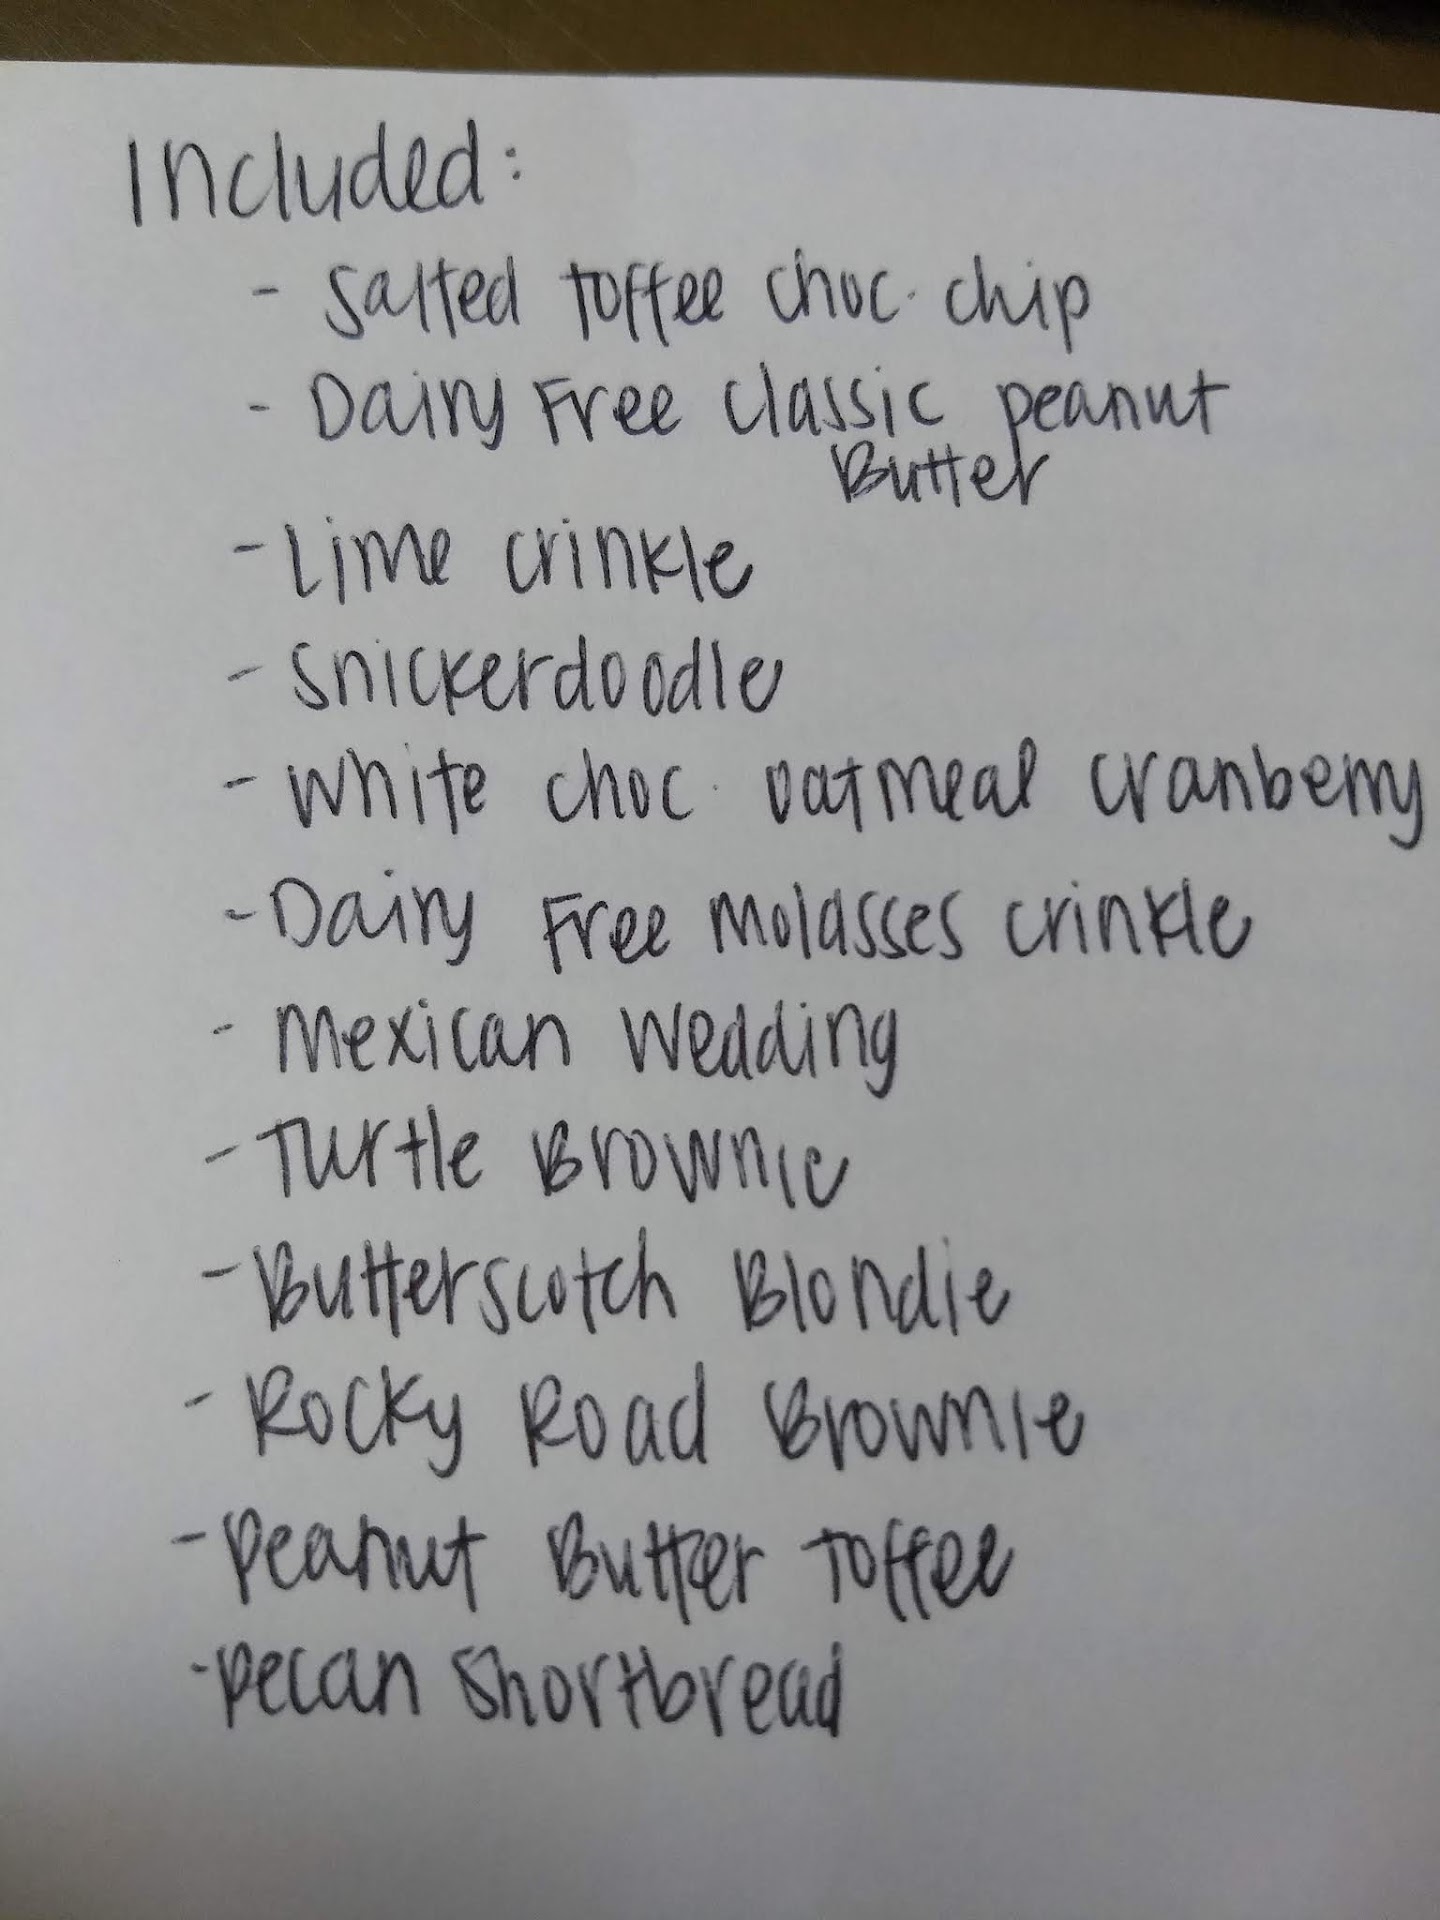 Included:
- Salted toffee choc. chip
- Dairy Free classic peanut
Butter
- Lime crinkle
- Snickerdoodle
- White choc. oatmeal cranberry
- Dairy Free Molasses crinkle
- Mexican Wedding
- Turtle Brownie
- Butterscotch Blondie
- Rocky Road Brownie
- Peanut Butter Toffee
- Pecan Shortbread